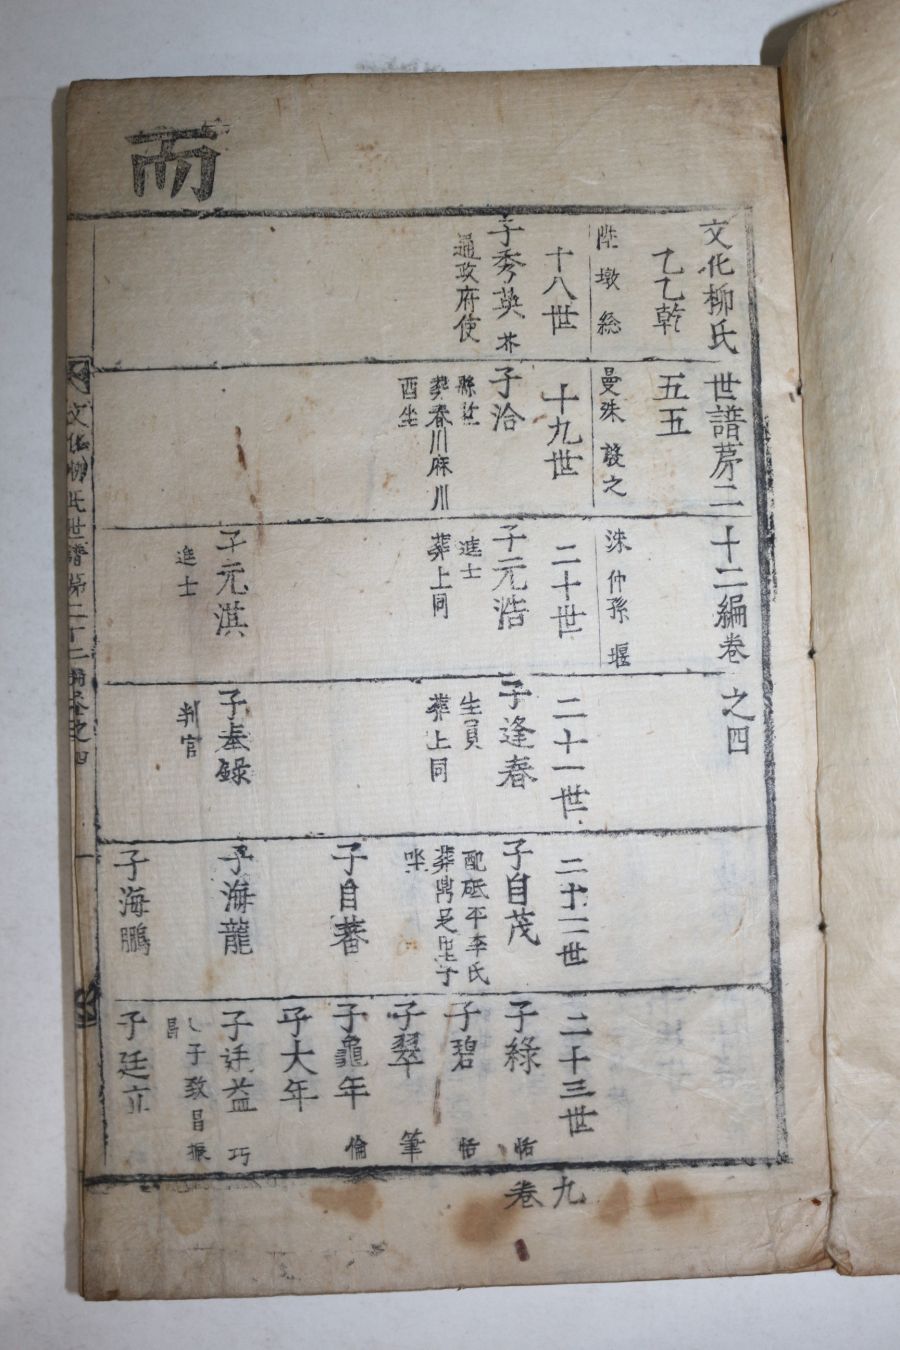 而
文化柳氏世譜第二十二編卷之四
乙乙乾
五五
陞 墩 総
曼殊 散之
洙 仲孫 堰
十八世
子秀英 芥
通政府使
十九世
子洽
縣監
葬春川麻川
酉坐
二十世
子元浩
進士
葬上同
子元淇
進士
二十一世
子逢春
生員
葬上同
子奉錄
判官
二十二世
子自茂
配砥平李氏
葬鼎足里子
坐
子自蕃
子海龍
子海鵬
二十三世
子綠 恬
子碧 恬
子翠 筆
子龜年 倫
子大年
子廷益 巧
子致昌振
昌
子廷立
九
卷
文化柳氏世譜第二十二編卷之四